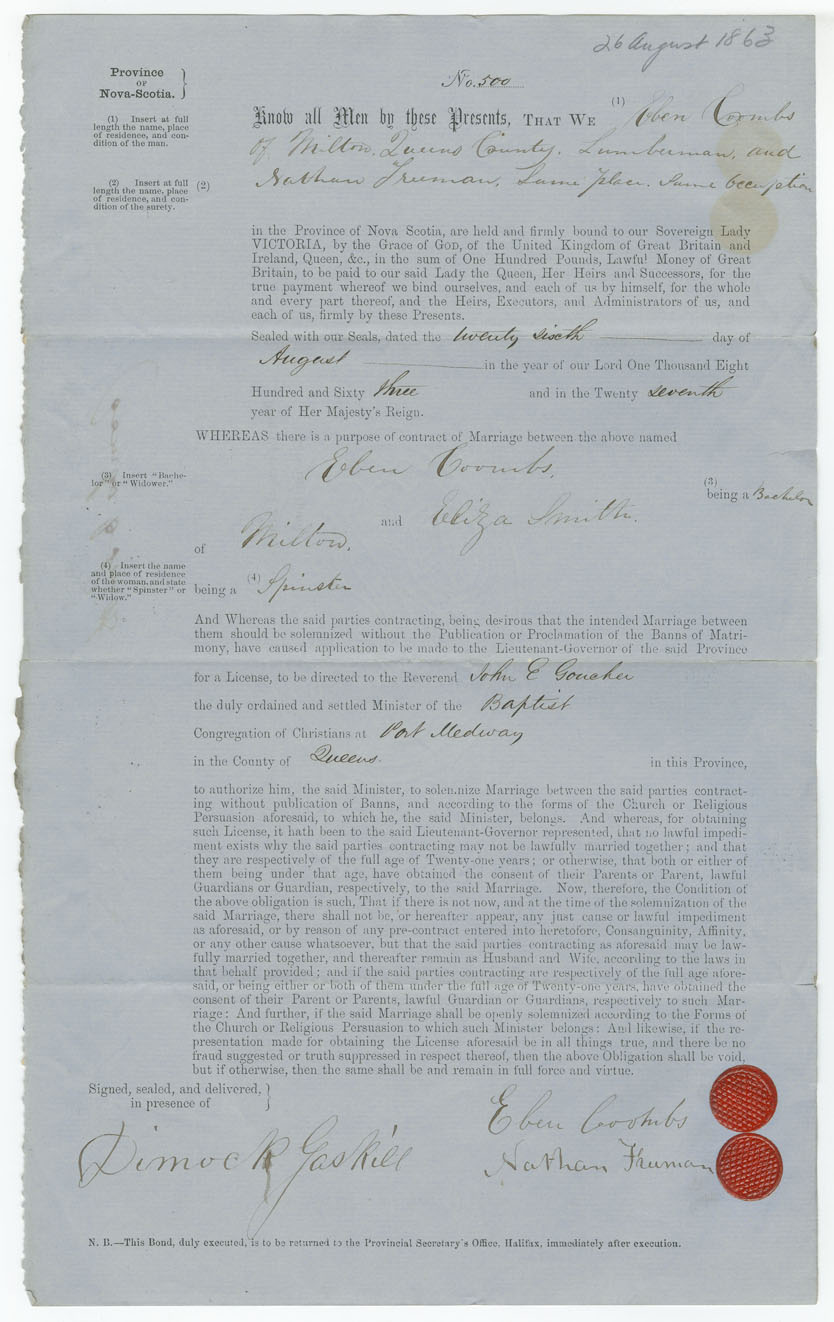 26 August 1863
Province
OF
Nova-Scotia. }
No. 500
(1) Insert at full
length the name, place
of residence, and con-
dition of the man.
Know all Men by these Presents, THAT WE (1) Eben Coombs
of Milton. Queens County. Lumberman, and
(2) Insert at full
length the name, place
of residence, and con-
dition of the surety.
(2) Nathan Freeman, Same place. Same Occupation
in the Province of Nova Scotia, are held and firmly bound to our Sovereign Lady
VICTORIA, by the Grace of GOD, of the United Kingdom of Great Britain and
Ireland, Queen, &c., in the sum of One Hundred Pounds, Lawful Money of Great
Britain, to be paid to our said Lady the Queen, Her Heirs and Successors, for the
true payment whereof we bind ourselves, and each of us by himself, for the whole
and every part thereof, and the Heirs, Executors, and Administrators of us, and
each of us, firmly by these Presents.
Sealed with our Seals, dated the twenty sixth day of
August in the year of our Lord One Thousand Eight
Hundred and Sixty three and in the Twenty seventh
year of Her Majesty's Reign.
WHEREAS there is a purpose of contract of Marriage between the above named
Eben Coombs,
(3) Insert "Bache-
lor" or "Widower."
(3)
being a Bachelor
and Eliza Smith.
of Milton.
(4) Insert the name
and place of residence
of the woman, and state
whether "Spinster" or
"Widow."
being a (4) Spinster
And Whereas the said parties contracting, being desirous that the intended Marriage between
them should be solemnized without the Publication or Proclamation of the Banns of Matri-
mony, have caused application to be made to the Lieutenant-Governor of the said Province
for a License, to be directed to the Reverend John E Goucher
the duly ordained and settled Minister of the Baptist
Congregation of Christians at Port Medway
in the County of Queens. in this Province,
to authorize him, the said Minister, to solemnize Marriage between the said parties contract-
ing without publication of Banns, and according to the forms of the Church or Religious
Persuasion aforesaid, to which he, the said Minister, belongs. And whereas, for obtaining
such License, it hath been to the said Lieutenant-Governor represented, that no lawful impedi-
ment exists why the said parties contracting may not be lawfully married together; and that
they are respectively of the full age of Twenty-one years; or otherwise, that both or either of
them being under that age, have obtained the consent of their Parents or Parent, lawful
Guardians or Guardian, respectively, to the said Marriage. Now, therefore, the Condition of
the above obligation is such, That if there is not now, and at the time of the solemnization of the
said Marriage, there shall not be, or hereafter appear, any just cause or lawful impediment
as aforesaid, or by reason of any pre-contract entered into heretofore, Consanguinity, Affinity,
or any other cause whatsoever, but that the said parties contracting as aforesaid may be law-
fully married together, and thereafter remain as Husband and Wife, according to the laws in
that behalf provided; and if the said parties contracting are respectively of the full age afore-
said, or being either or both of them under the full age of Twenty-one years, have obtained the
consent of their Parent or Parents, lawful Guardian or Guardians, respectively to such Mar-
riage: And further, if the said Marriage shall be openly solemnized according to the Forms of
the Church or Religious Persuasion to which such Minister belongs: And likewise, if the re-
presentation made for obtaining the License aforesaid be in all things true, and there be no
fraud suggested or truth suppressed in respect thereof, then the above Obligation shall be void,
but if otherwise, then the same shall be and remain in full force and virtue.
Signed, sealed, and delivered, }
in presence of
Eben Coombs
Dimock Gaskill
Nathan Freeman
N. B.—This Bond, duly executed, is to be returned to the Provincial Secretary's Office, Halifax, immediately after execution.